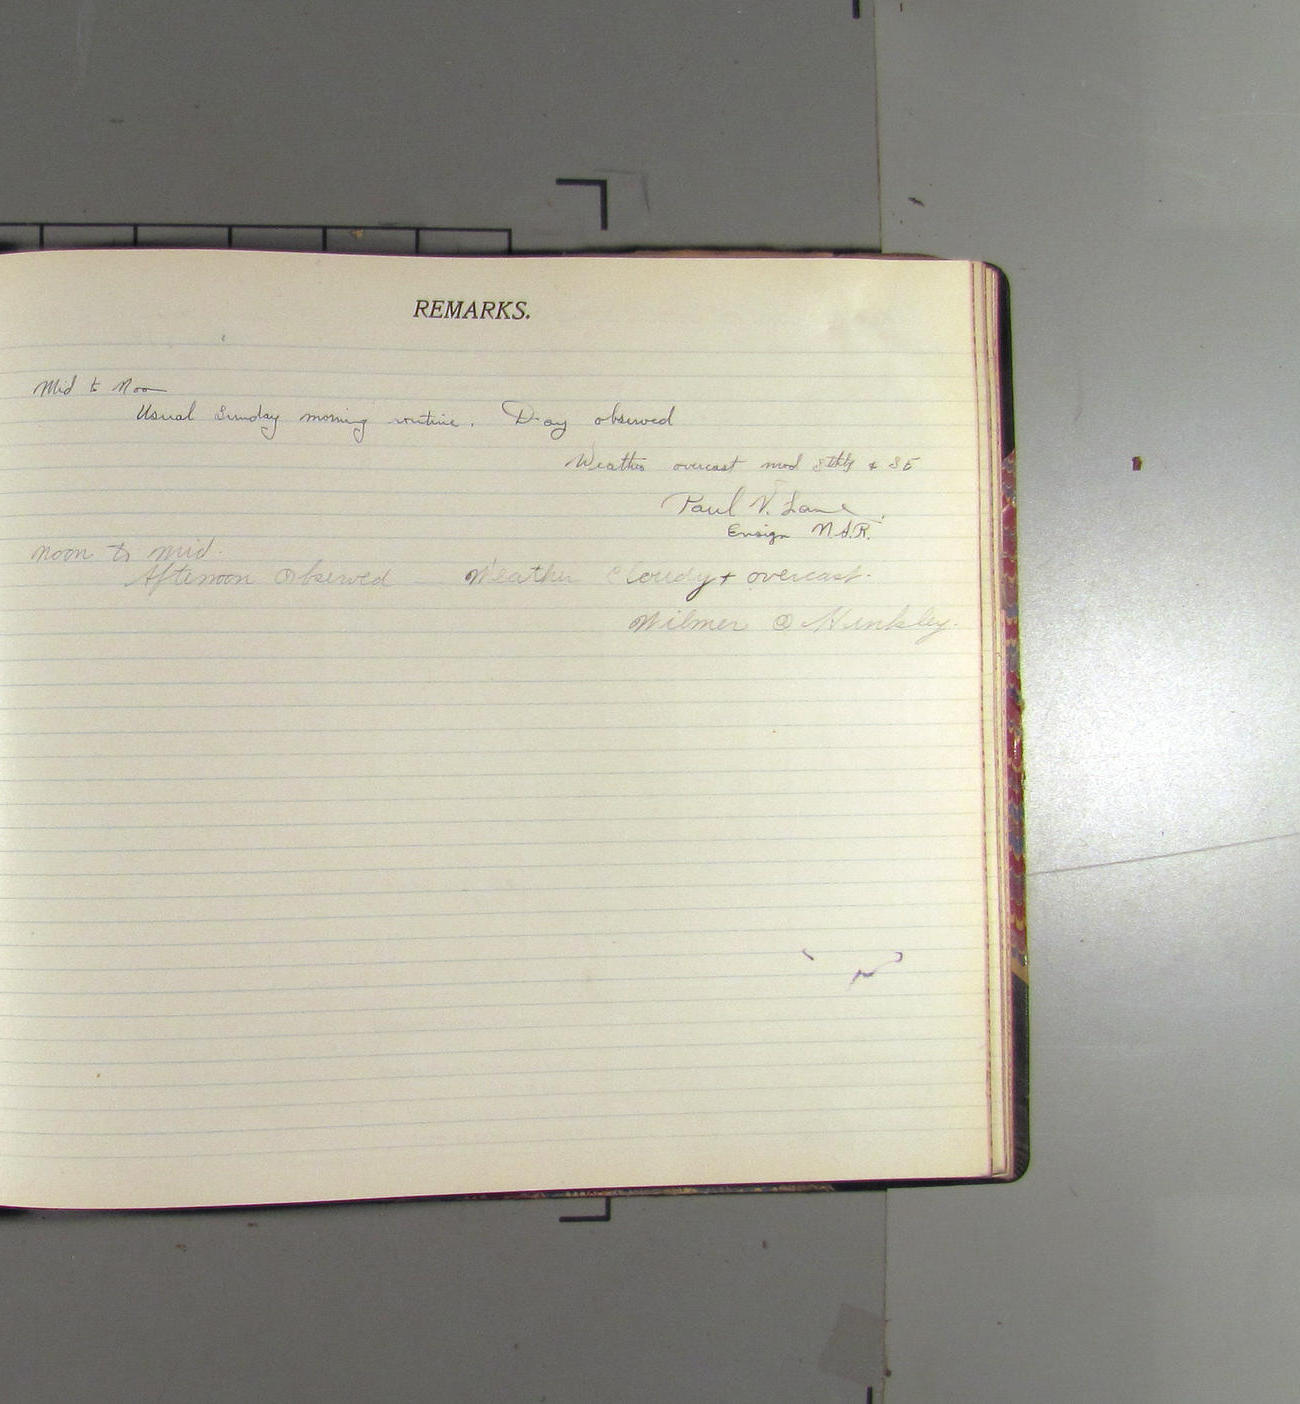 REMARKS.
Mid to Noon
Usual Sunday morning routine. Day observed
Weather overcast mod Sthly & SE
Paul V. Lane
Ensign N.A.R.
Noon to mid.
Afternoon observed Weather Cloudy + overcast.
Wilmer @ Hinkley.